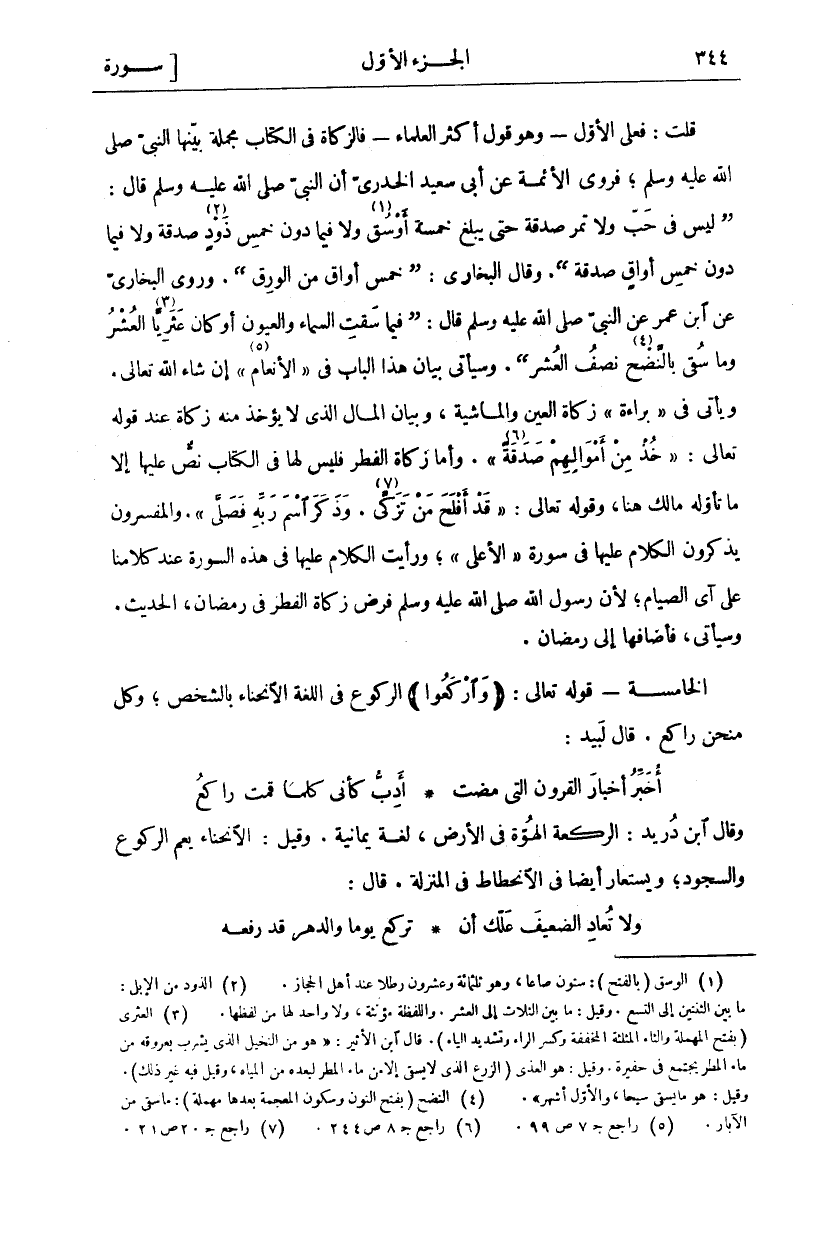 ٣٤٤ الجـــزء الأوّل [ ســـورة
قلت : فعلى الأوّل — وهو قول أكثر العلماء — فالزكاة فى الكتاب مجملة بيّنها النبىّ صلى
الله عليه وسلم ؛ فروى الأئمـة عن أبى سعيد الخدرىّ أن النبىّ صلى الله عليـه وسلم قال :
” ليس فى حَبّ ولا تمر صدقة حتى يبلغ خمسة أَوْسُق (١) ولا فيما دون خمس ذَوْدٍ (٢) صدقة ولا فيما
دون خمس أواقٍ صدقة “. وقال البخارى : ” خمس أواق من الورِق “ . وروى البخارىّ
عن آبن عمر عن النبىّ صلى الله عليه وسلم قال : ” فيما سَقتِ السماء والعيون أو كان عَثَرِيًّا (٣) العُشْرُ
وما سُقِى بالنَّضْح (٤) نصفُ العُشر“ . وسيأتى بيان هذا الباب فى « الأنعام (٥) » إن شاء الله تعالى .
ويأتى فى « براءة » زكاة العين والمـاشية ، وبيان المـال الذى لا يؤخذ منه زكاة عند قوله
تعالى : « خُذْ مِنْ أَمْوَالِهِمْ صَدَقَةً (٦) » . وأما زكاة الفطر فليس لها فى الكتاب نصٌّ عليها إلا
ما تأوّله مالك هنا، وقوله تعالى : « قَدْ أَفْلَحَ مَنْ تَزَكَّى (٧) . وَذَكَرَ ٱسْمَ رَبِّهِ فَصَلَّى » . والمفسرون
يذكرون الكلام عليها فى سورة « الأعلى » ؛ ورأيت الكلام عليها فى هذه السورة عند كلامنا
على آى الصيام؛ لأن رسول الله صلى الله عليه وسلم فرض زكاة الفطر فى رمضان، الحديث.
وسيأتى، فأضافها إلى رمضان .
الخامســـة — قوله تعالى : ﴿ وَٱرْكَعُوا ﴾ الركوع فى اللغة الآنحناء بالشخص ؛ وكل
منحن راكع . قال لَبِيد :
أُخَبِّرُ أخبارَ القرون التى مضت * أَدِبُّ كأنى كلمـا قمت راكعُ
وقال آبن دُريد : الركعـة الهُوّة فى الأرض ، لغـة يمانية . وقيل : الآنحناء يعم الركوع
والسجود؛ ويستعار أيضا فى الآنحطاط فى المنزلة . قال :
ولا تُعادِ الضعيفَ علّك أن * تركع يوما والدهـر قد رفعـه
(١) الوسق (بالفتح) : ستون صاعا، وهو ثلثمائة وعشرون رطلا عند أهل الحجاز . (٢) الذود من الإبل :
ما بين الثنتين إلى التسع . وقيل : ما بين الثلاث إلى العشر . واللفظة مؤنثة ، ولا واحد لها من لفظها . (٣) العثرى
(بفتح المهملة والثاء المثلثة المخففة وكسر الراء وتشديد الياء) . قال آبن الأثير : « هو من النخيل الذى يشرب بعروقه من
ماء المطر يجتمع فى حفيرة . وقيل : هو العذى (الزرع الذى لا يسق إلا من ماء المطر لبعده من المياه ، وقيل فيه غير ذلك) .
وقيل : هو ما يسق سيحا ، والأوّل أشهر» . (٤) النضح (بفتح النون وسكون المعجمة بعدها مهملة) : ما سق من
الآبار . (٥) راجع جـ ٧ ص ٩٩ . (٦) راجع جـ ٨ ص ٢٤٤ . (٧) راجع جـ ٢٠ ص ٢١ .